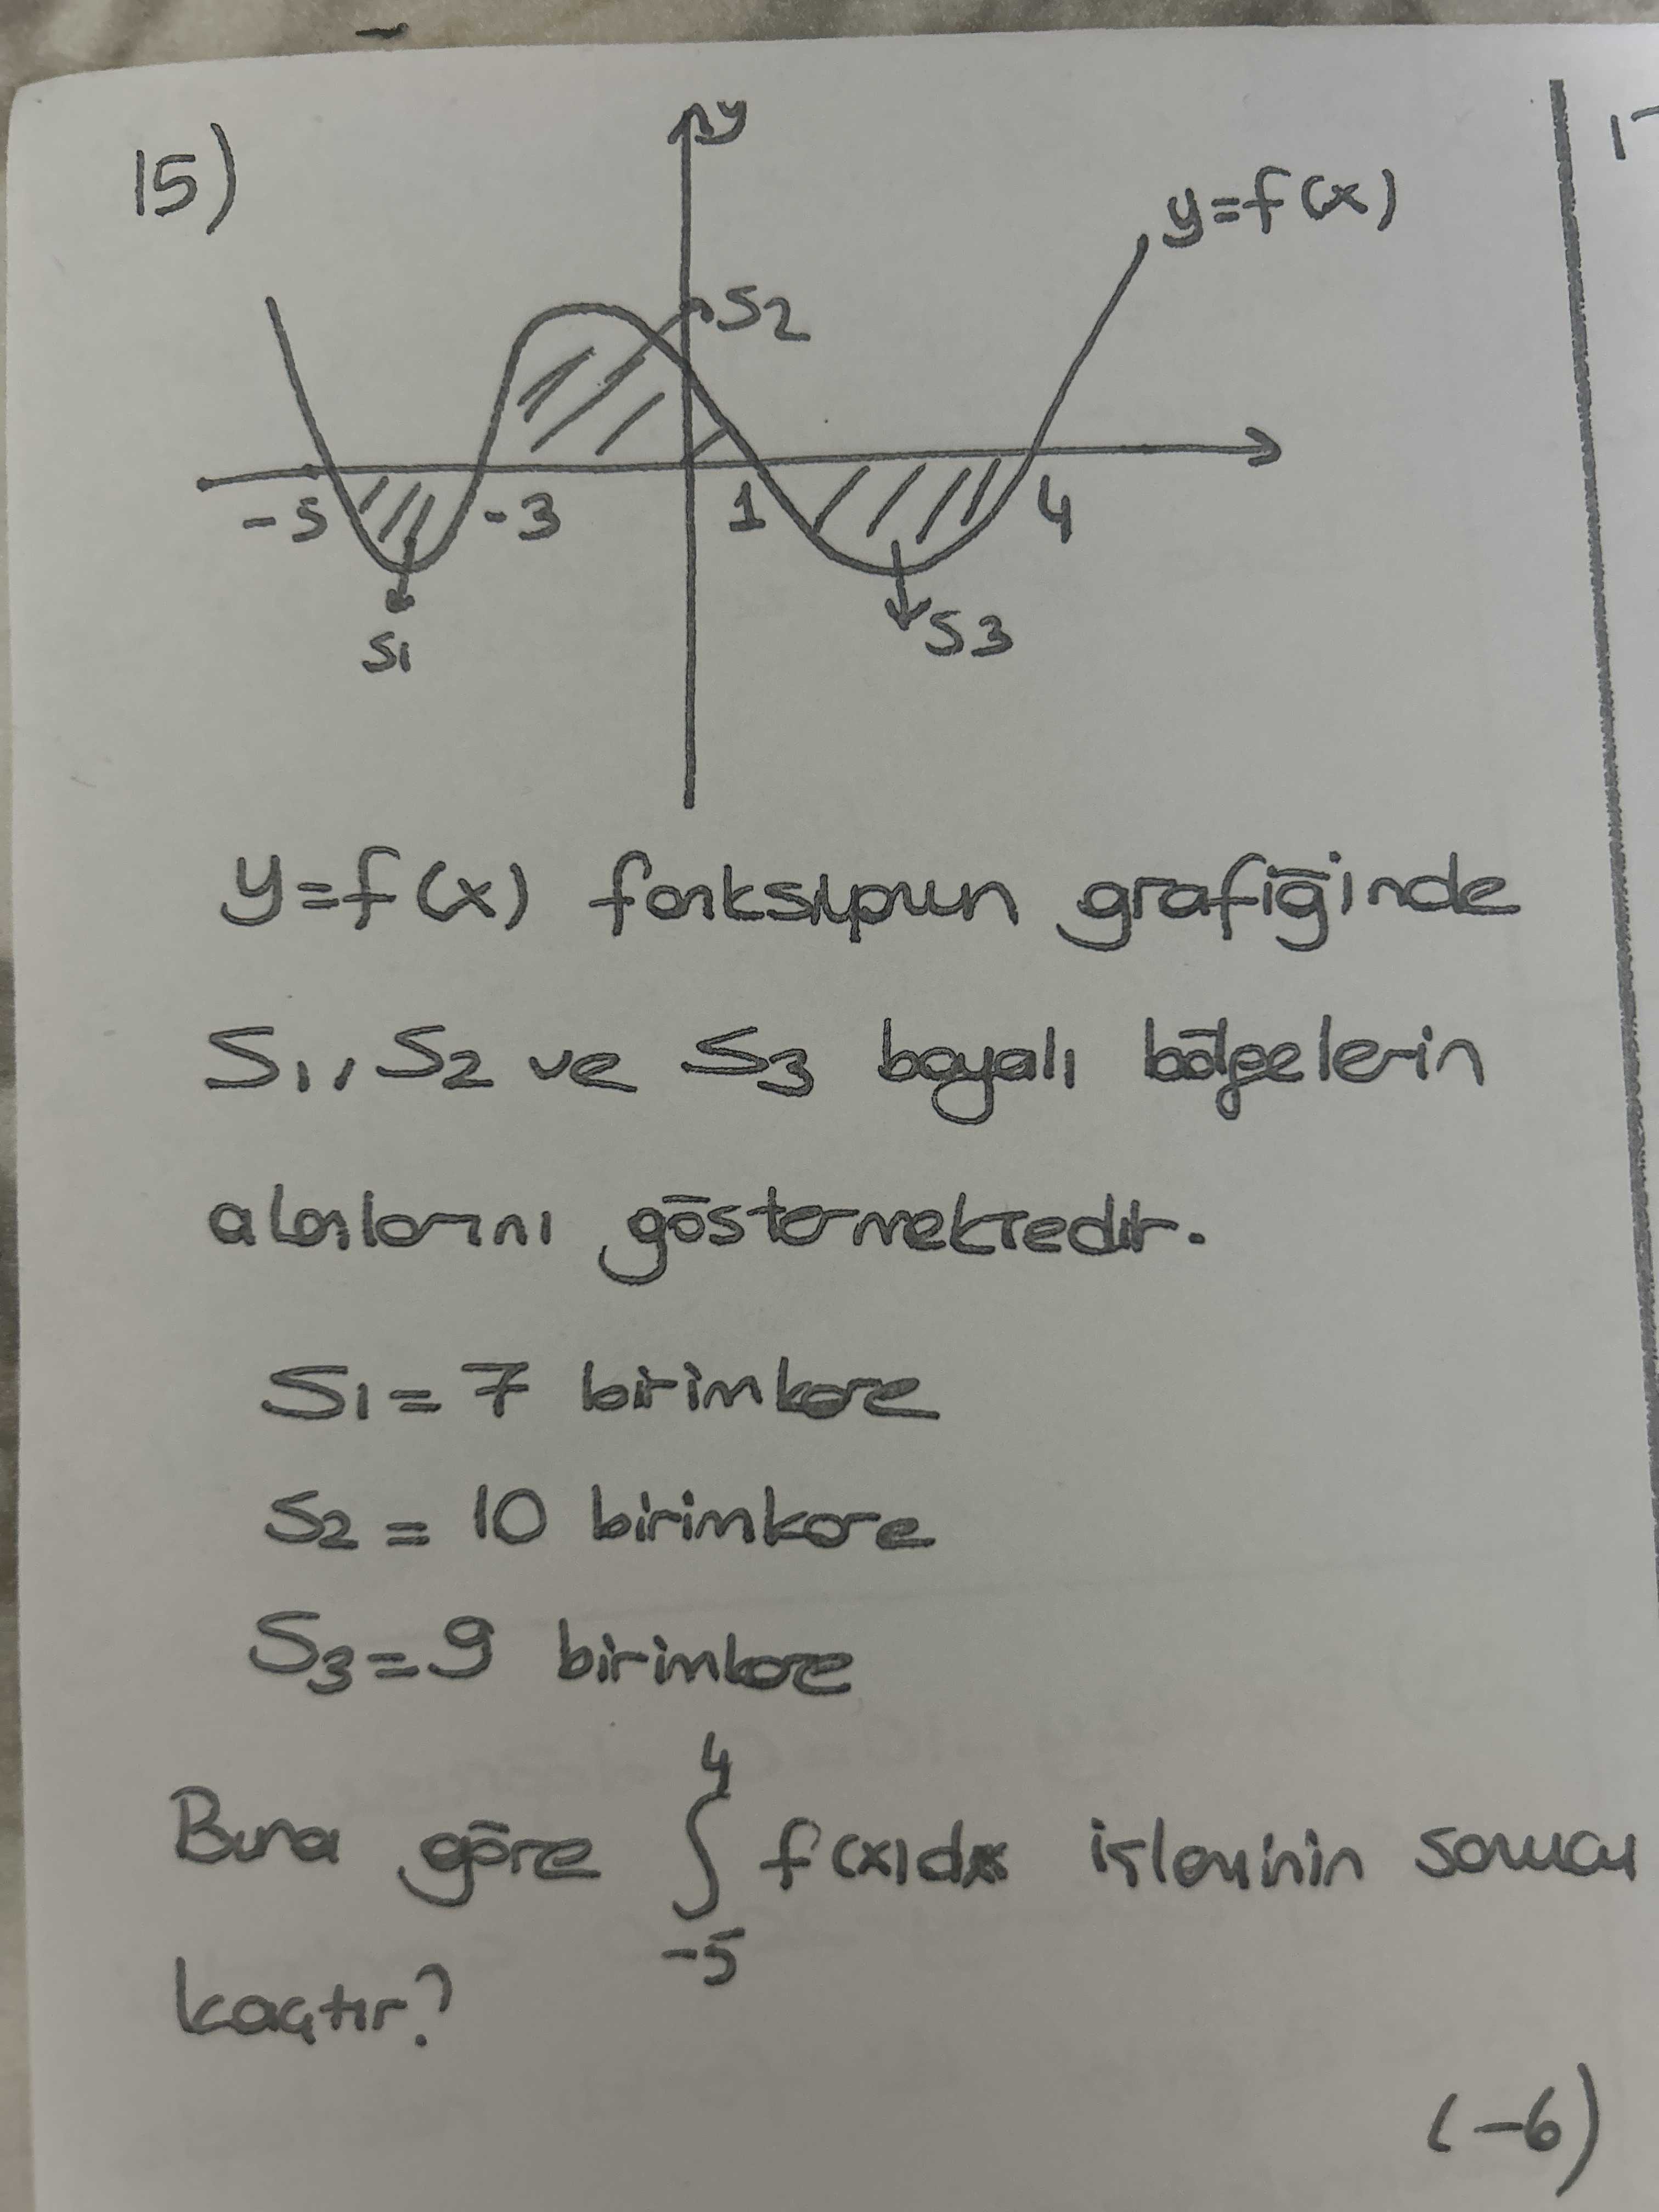 15)
y
y=f(x)
S2
-5
-3
1
4
S1
S3
y=f(x) fonksiyonun grafiğinde
S1, S2 ve S3 boyalı bölgelerin
alanlarını göstermektedir.
S1 = 7 birimkare
S2 = 10 birimkare
S3 = 9 birimkare
4
Buna göre ∫ f(x)dx işleminin sonucu
-5
kaçtır?
(-6)